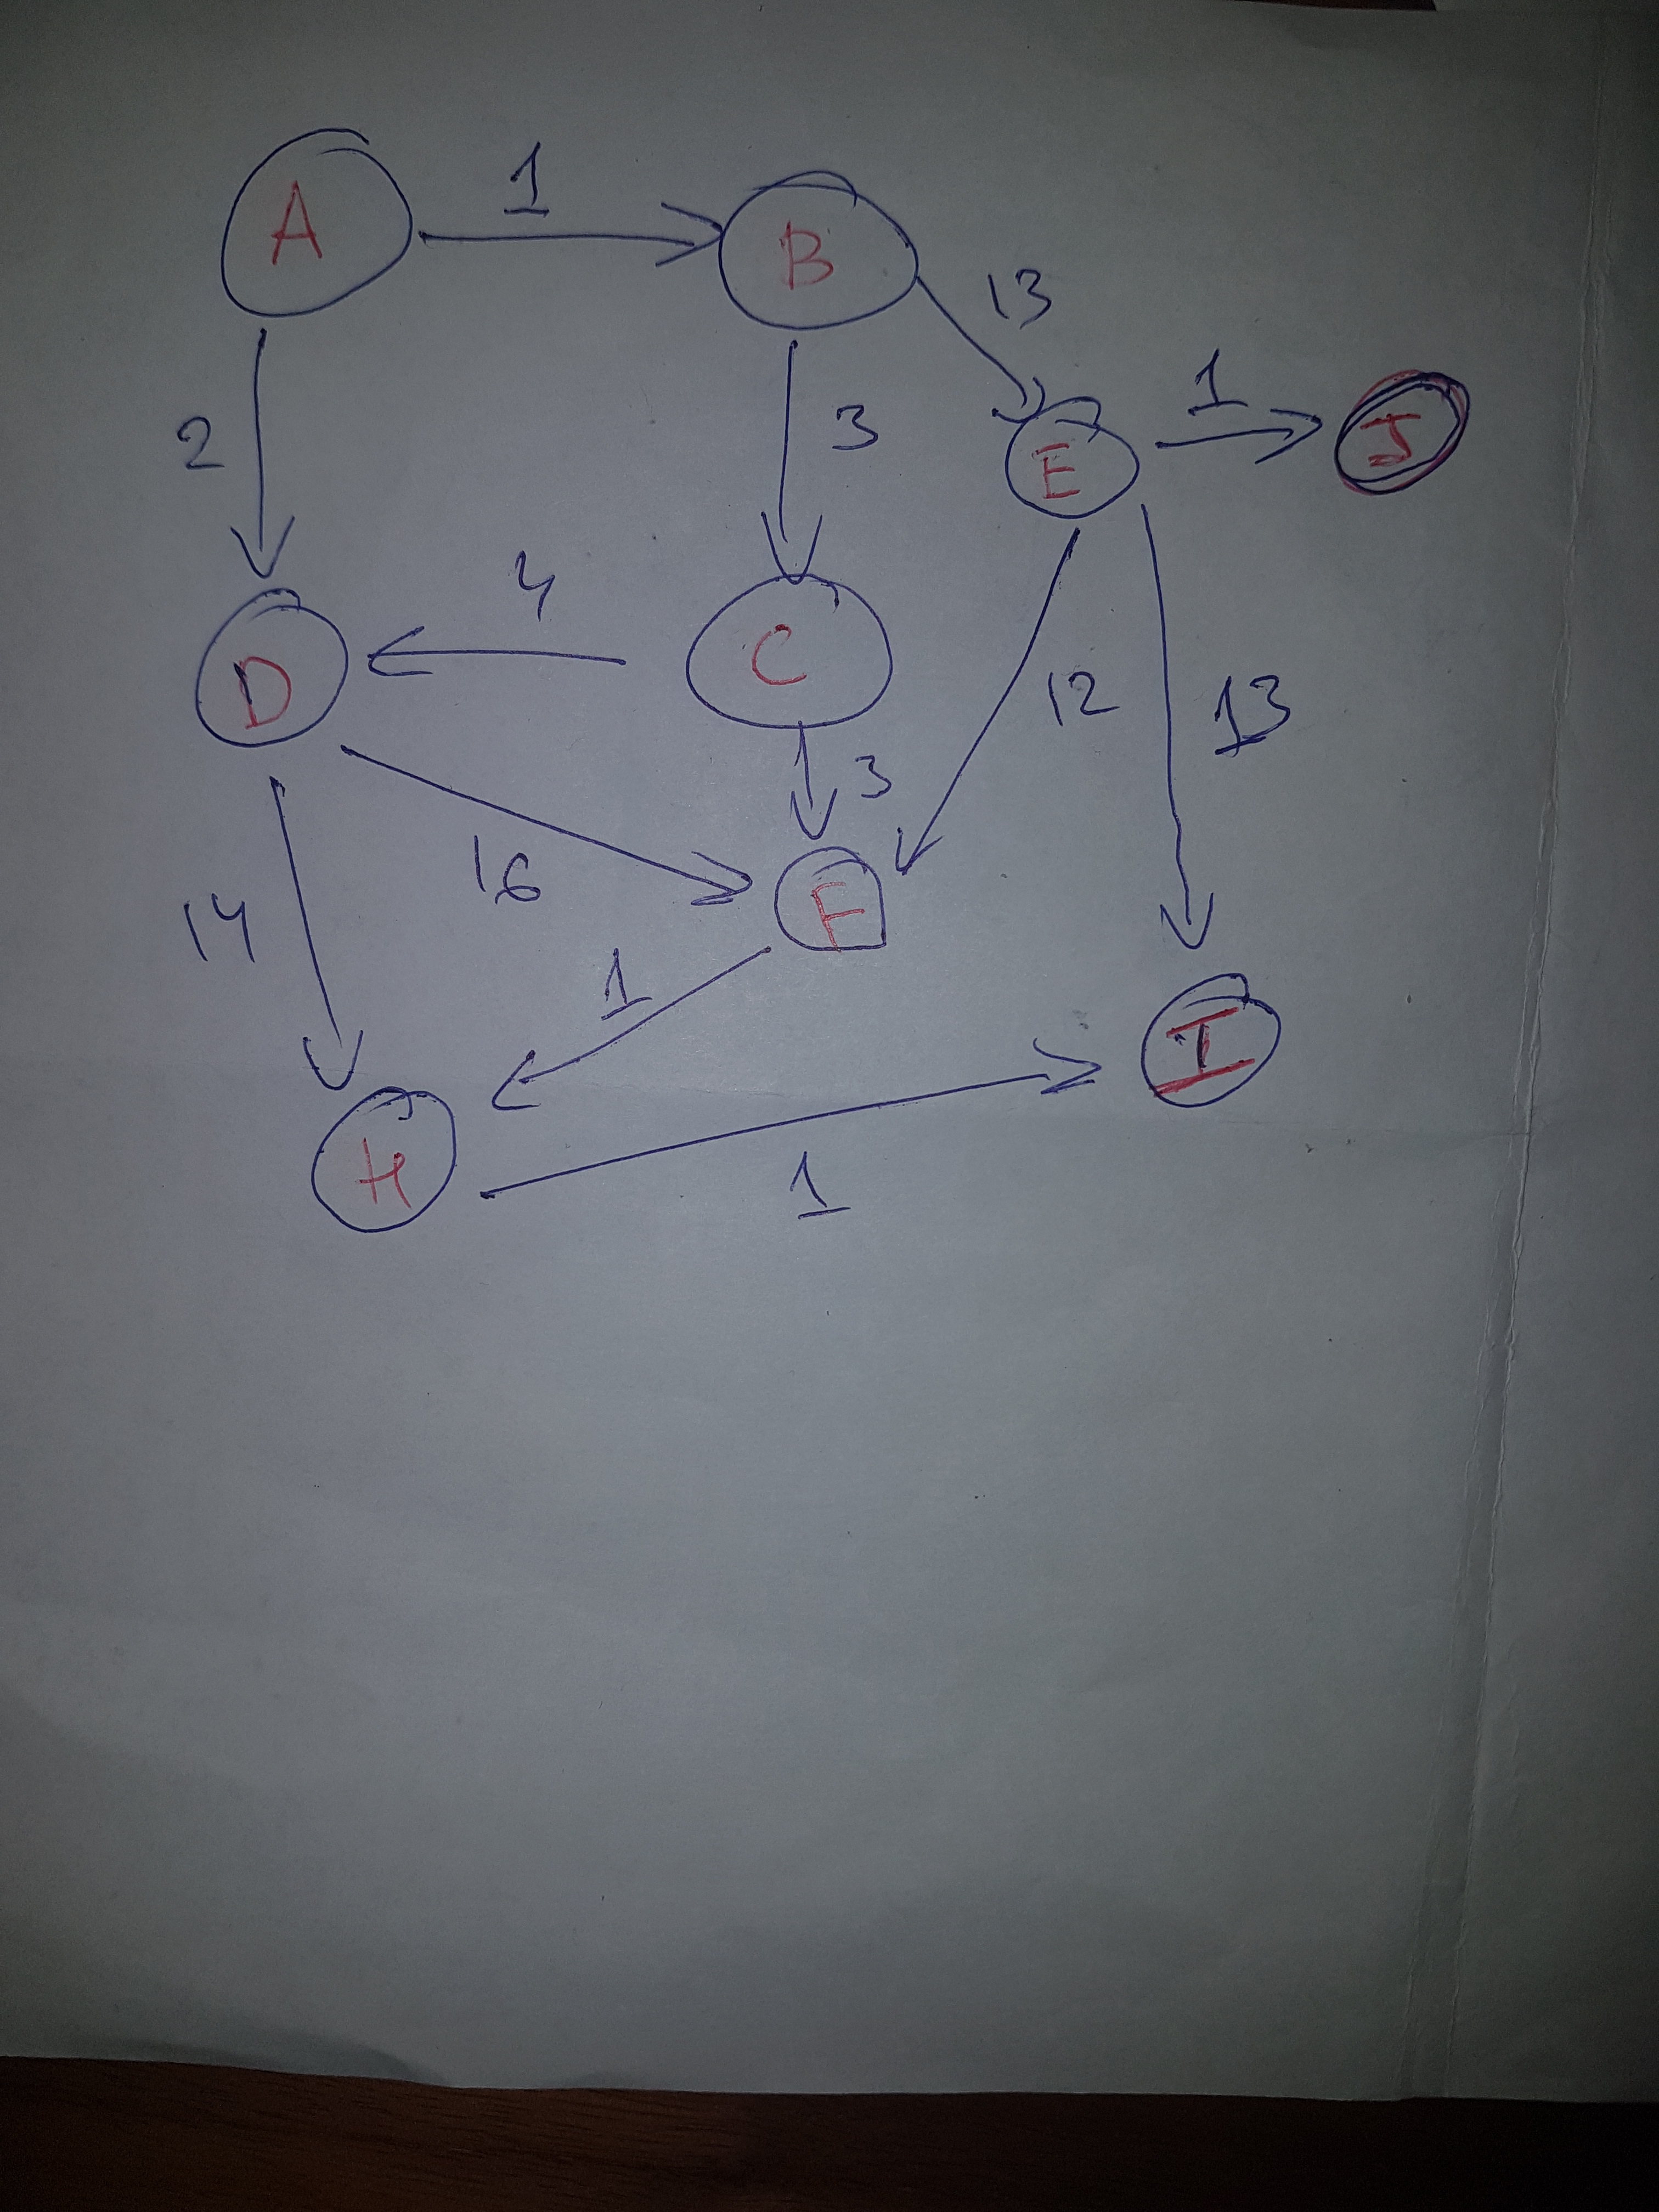 1
A
B
13
1
2
3
E
J
4
D
C
12
13
3
16
F
14
1
I
H
1